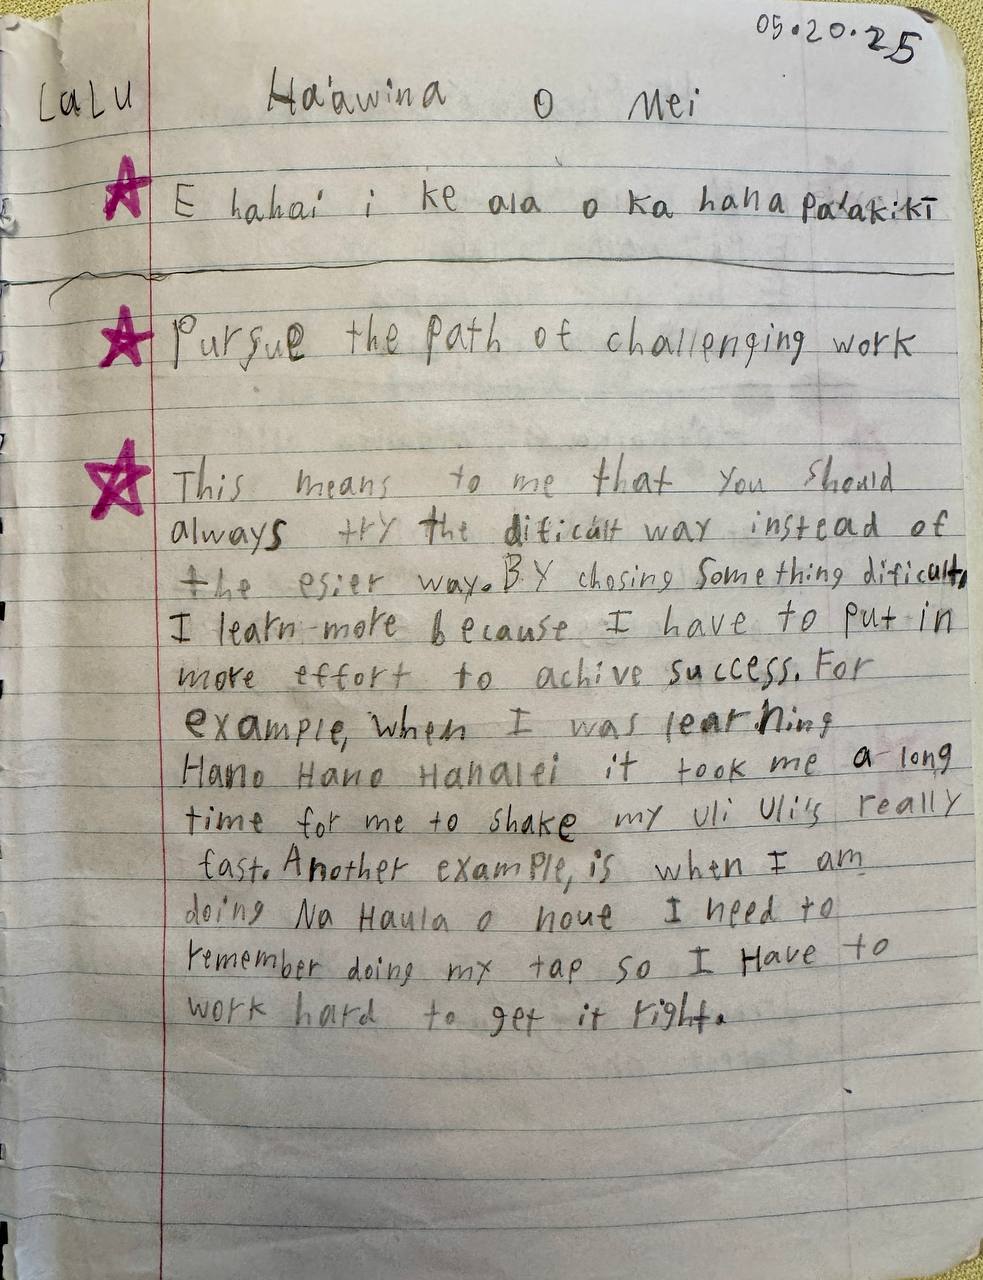 05.20.25
LaLu Ha'awina o Mei
E hahai i ke ala o ka hana pa'akikī
Pursue the path of challenging work
This means to me that you should
always try the dificult way instead of
the esier way. By chosing something dificult,
I learn more because I have to put in
more effort to achive success. For
example, when I was learning
Hano Hano Hanalei it took me a long
time for me to shake my uli uli's really
fast. Another example, is when I am
doing Na Haula o noue I need to
remember doing my tap so I Have to
work hard to get it right.